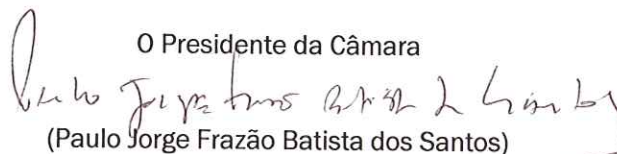 O Presidente da Câmara
Paulo Jorge Frazão Batista dos Santos
(Paulo Jorge Frazão Batista dos Santos)